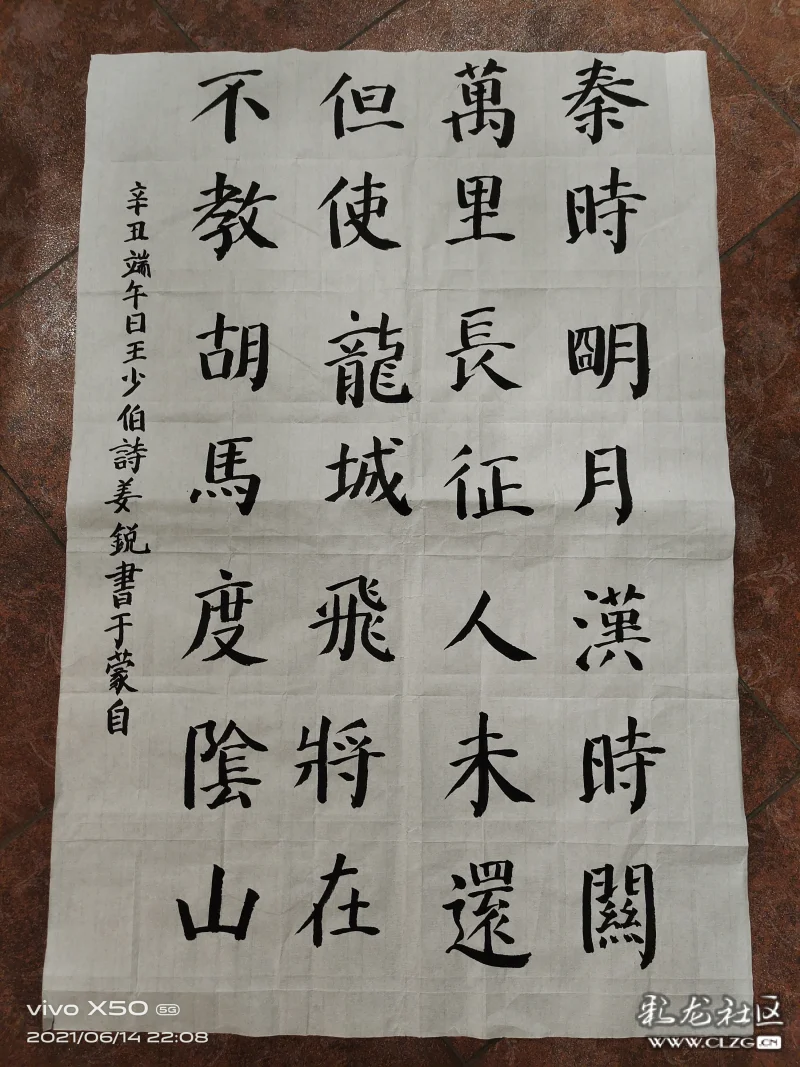 秦時朙月漢時關
萬里長征人未還
但使龍城飛將在
不教胡馬度陰山
辛丑端午日王少伯詩姜銳書于蒙自
vivo X50 5G
2021/06/14 22:08
彩龙社区
WWW.CLZG.CN